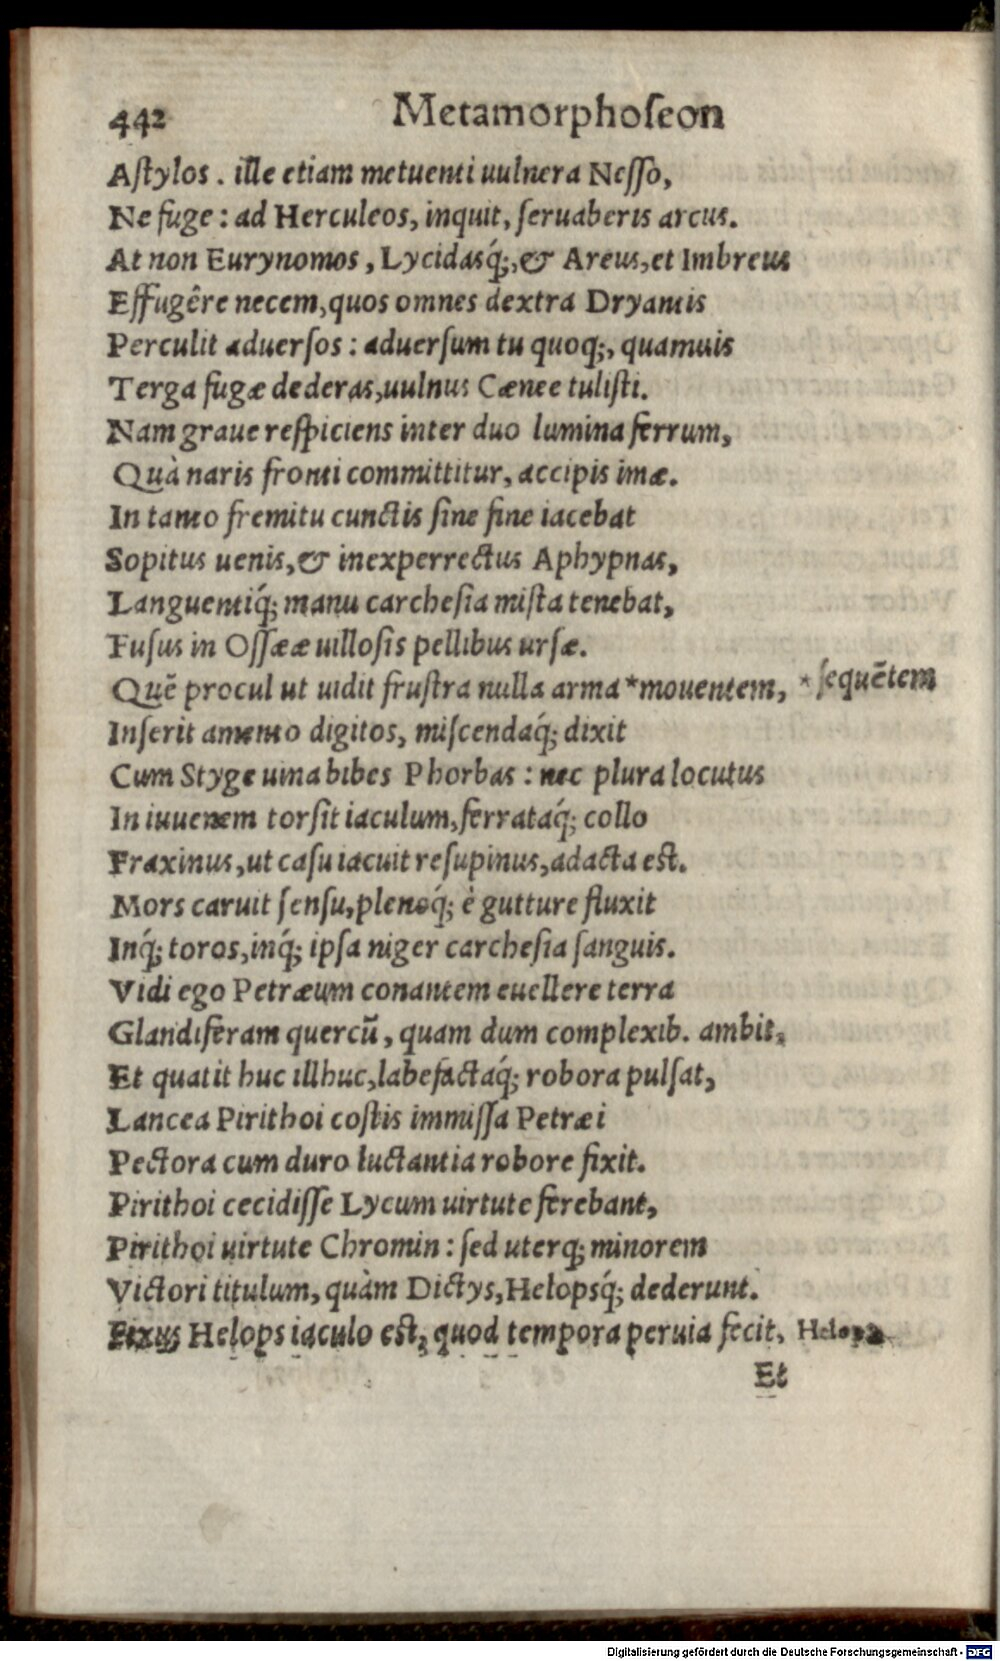 442 Metamorphoſeon
Aſtylos. ille etiam metuenti uulnera Neſſo,
Ne fuge: ad Herculeos, inquit, ſeruaberis arcus.
At non Eurynomos, Lycidasq́;, & Areus, et Imbreus
Effugêre necem, quos omnes dextra Dryantis
Perculit aduerſos: aduerſum tu quoq;, quamuis
Terga fugæ dederas, uulnus Cænee tuliſti.
Nam graue reſpiciens inter duo lumina ferrum,
Quà naris fronti committitur, accipis imæ.
In tanto fremitu cunctis ſine fine iacebat
Sopitus uenis, & inexperrectus Aphypnas,
Languentiq́; manu carcheſia miſta tenebat,
Fuſus in Oſſææ uilloſis pellibus urſæ.
Quē procul ut uidit fruſtra nulla arma *mouentem, * ſequētem
Inſerit amento digitos, miſcendaq́; dixit
Cum Styge uina bibes Phorbas: nec plura locutus
In iuuenem torſit iaculum, ferrataq́; collo
Fraxinus, ut caſu iacuit reſupinus, adacta eſt.
Mors caruit ſenſu, plenoq́; è gutture fluxit
Inq́; toros, inq́; ipſa niger carcheſia ſanguis.
Vidi ego Petræum conantem euellere terra
Glandiferam quercū, quam dum complexib. ambit,
Et quatit huc illhuc, labefactaq́; robora pulſat,
Lancea Pirithoi coſtis immiſſa Petræi
Pectora cum duro luctantia robore fixit.
Pirithoi cecidiſſe Lycum uirtute ferebant,
Pirithoi uirtute Chromin: ſed uterq; minorem
Victori titulum, quàm Dictys, Helopsq́; dederunt.
Fixus Helops iaculo eſt, quod tempora peruia fecit, Helops
Et
Digitalisierung gefördert durch die Deutsche Forschungsgemeinschaft - DFG